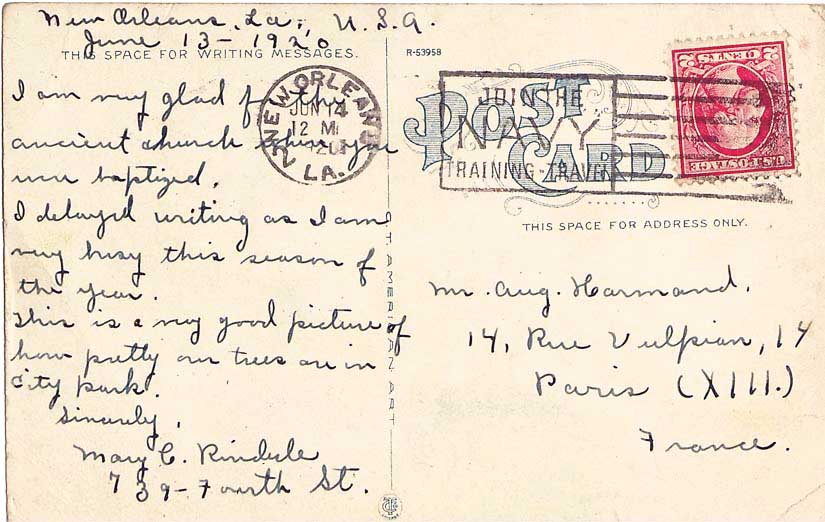 New Orleans, La., U.S.A.
June 13 - 1920
THIS SPACE FOR WRITING MESSAGES.
I am very glad for the
ancient church where you
were baptized.
I delayed writing as I am
very busy this season of
the year.
This is a very good picture of
how pretty our trees are in
City Park.
Sincerely,
Mary C.
739 - Fourth St.
NEW ORLEANS
JUN 14
12 M
LA.
AMERICAN ART
R-53958
POST
CARD
JOIN THE
NAVY
TRAINING-TRAVEL
U.S. POSTAGE
2 CENTS 2
THIS SPACE FOR ADDRESS ONLY.
Mr. Aug. Harmand.
14, Rue Vulpian, 14
Paris (XIII.)
France.